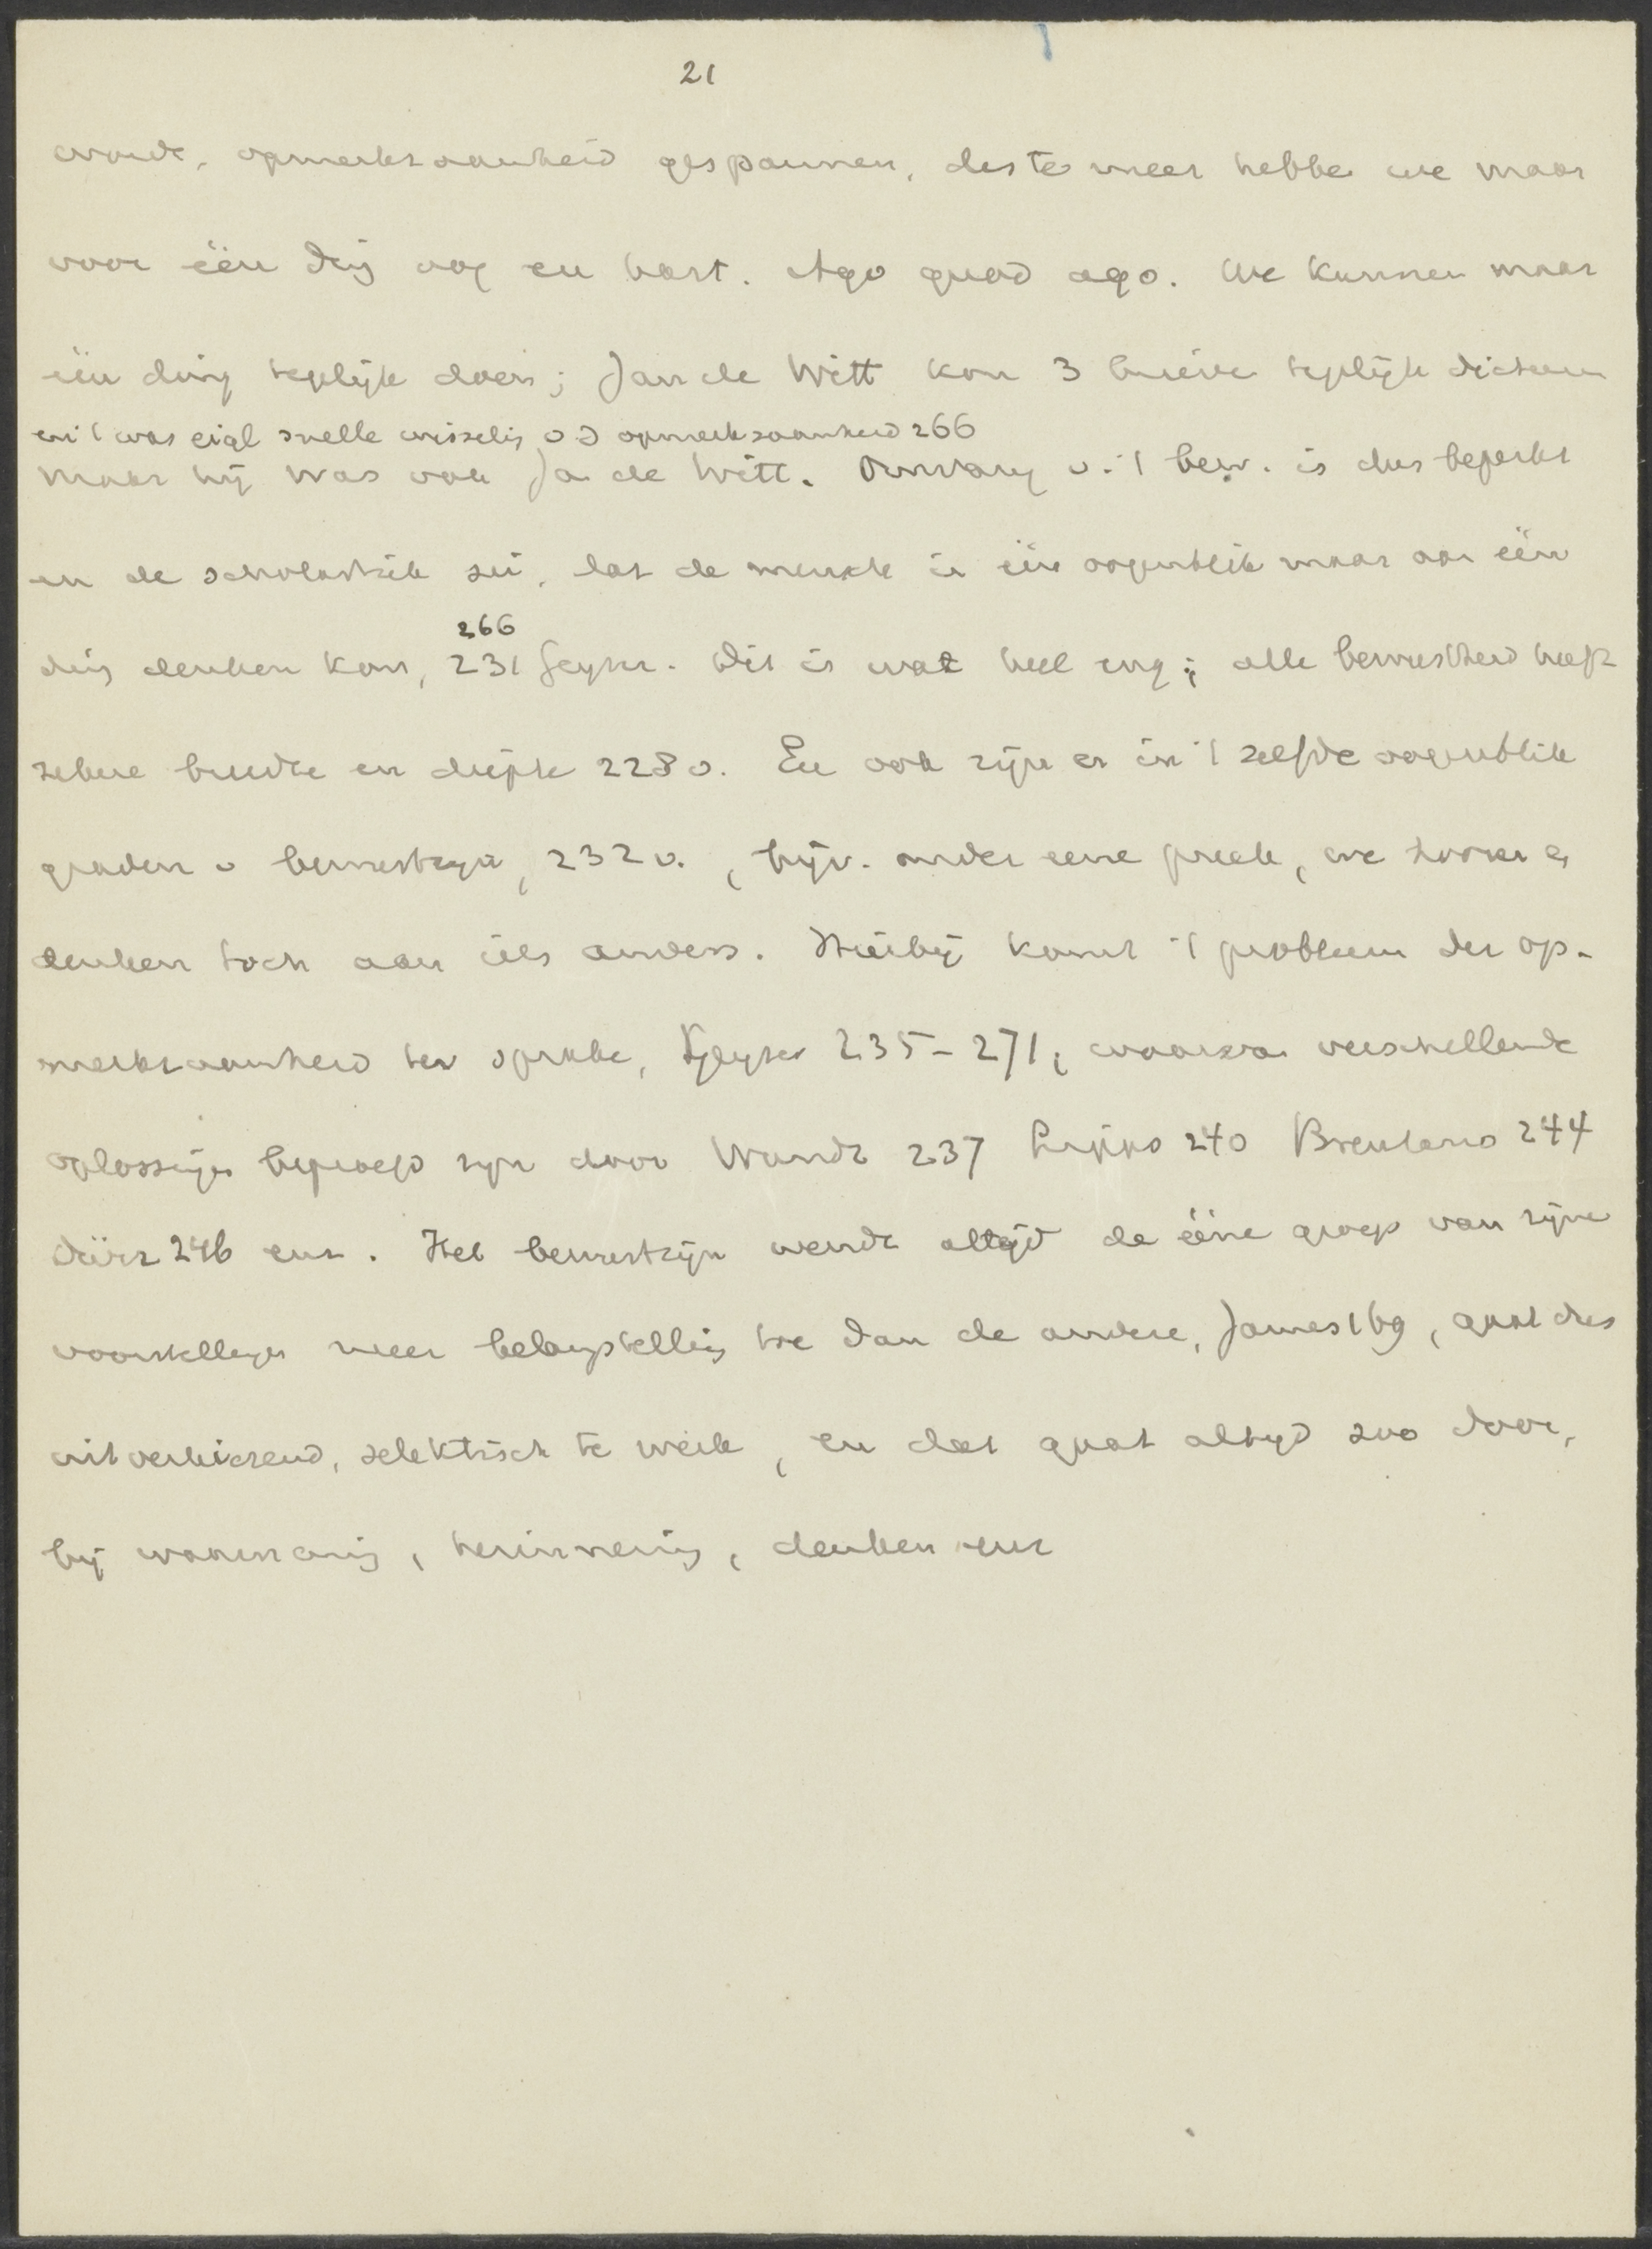 21
worde, opmerkzaamheid gespannen, des te meer hebbe we maar
voor één ding oog en hart. Ago quod ago. We kunnen maar
één ding tegelijk doen; Jan de Witt kon 3 brieve tegelijk dicteeren
en 't was eigl snelle wisseling v d opmerkzaamheid 266
maar hij was ook Ja de Witt. Omvang v. 't bew. is dus beperkt
en de scholastiek zei, dat de mensch in één oogenblik maar aan één
ding denken kon, 231 Geyser. Dit is wat heel eng; alle bewustheid heeft
266
zekere breedte en diepte 228 v. En ook zijn er in 't zelfde oogenblik
graden v bewustzijn, 232 v., bijv. onder eene preek, we hooren en
denken toch aan iets anders. Hierbij komt 't probleem der op-
merkzaamheid ter sprake, Geyser 235-271, waarvan verschillende
oplossingen beproefd zijn door Wundt 237 Lipps 240 Brentano 244
Dürr 246 enz. Het bewustzijn wendt altijd de ééne groep van zijne
voorstellingen meer belangstelling toe dan de andere, James 169, gaat dus
uitverkiezend, selektisch te werk, en dat gaat altijd zoo door,
bij waarneming, herinnering, denken enz